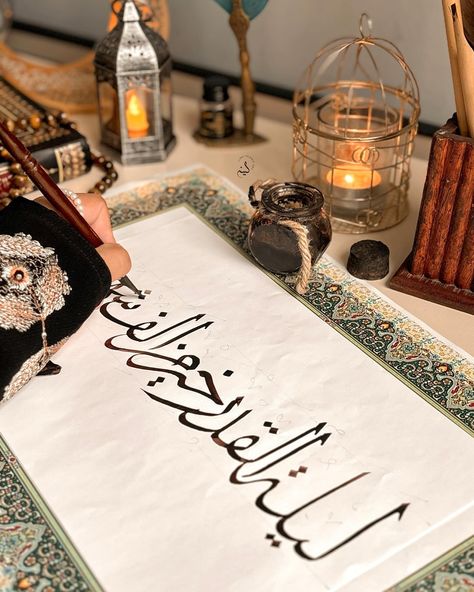 ليلة القدر خير من الف شهر